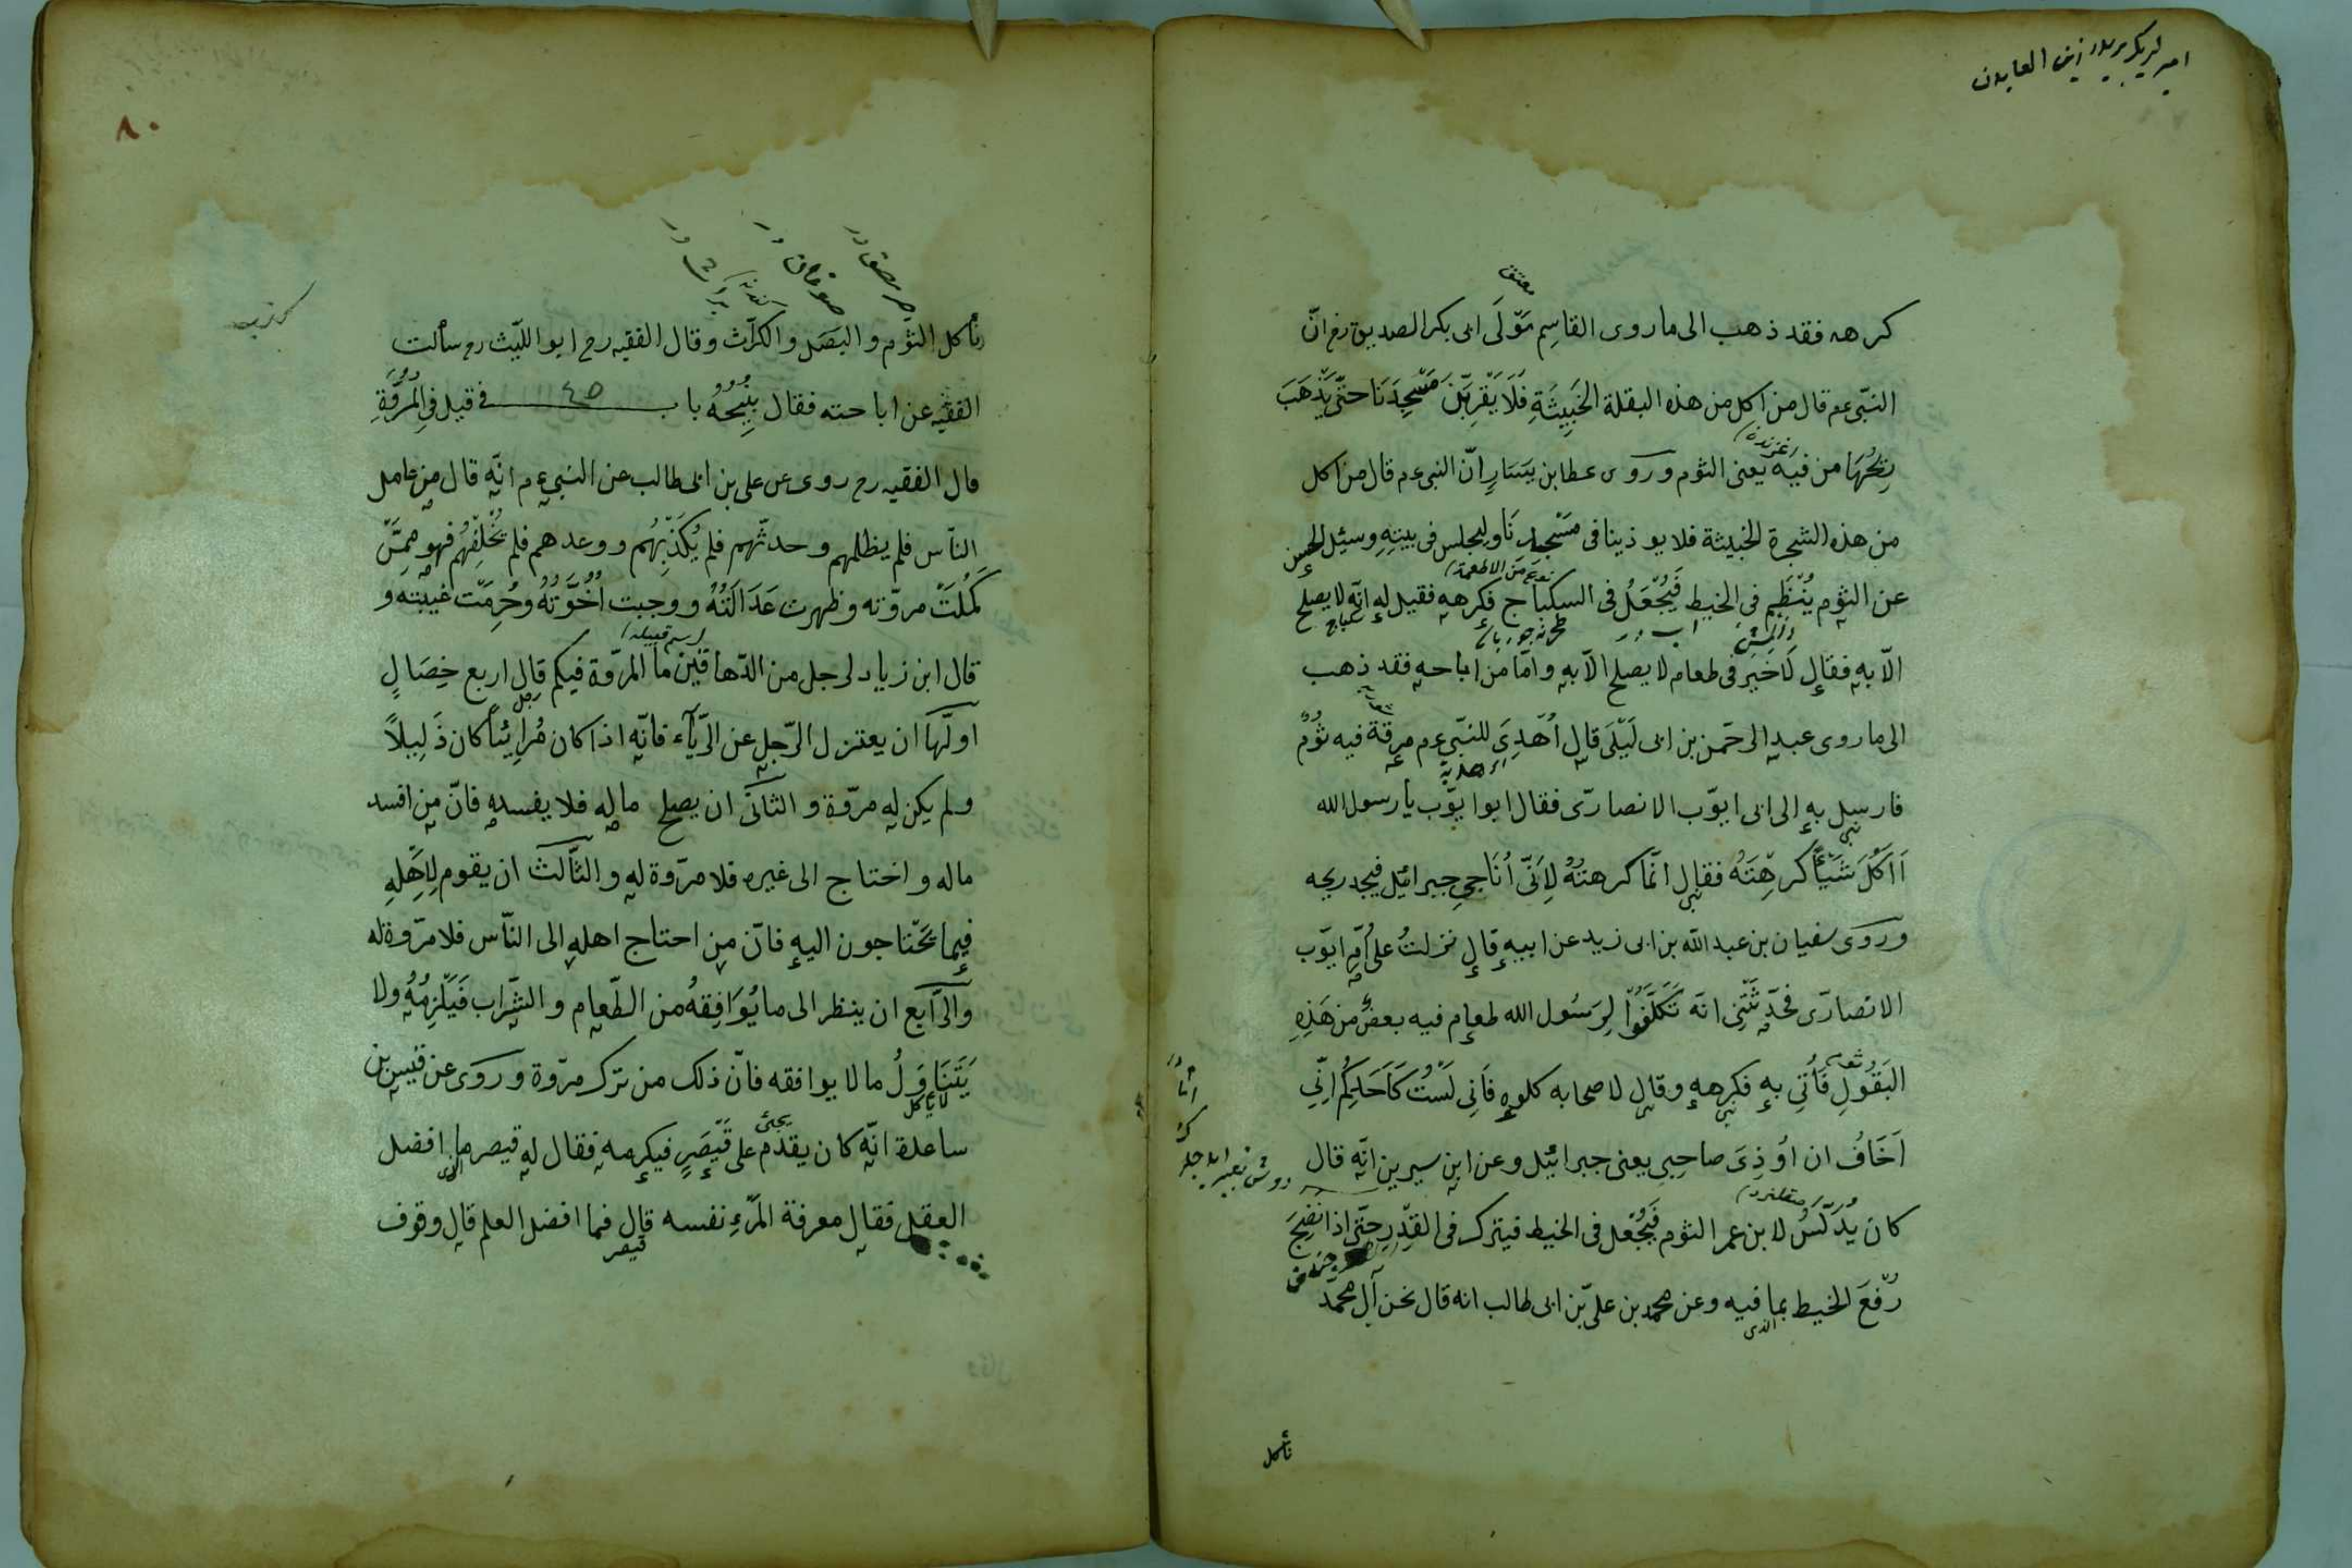 كرهه فقد ذهب الى ما روى القاسِم مَوّلَى ابى بكر الصديق رض انّ
النّبى عم قال من اكل من هذه البقلة الخَبِيثَةِ فَلَا يَقْرِبَنّ مَسْجِدَنَا حتّى يَذْهَبَ
رِيحُهَا من فيه يعنى الثوم وروى عطا بن يَسَارٍ انّ النبى عم قال من اكل
من هذه الشجرة الخبيثة فلا يوذينا فى مَسْجِدِنَا وليجلس فى بيتِهِ وسئِل الحسن
عن الثوم يُنْظَم فى الخيط فَيُجْعَلُ فى السكباج فكرهه فقيل له انّه لا يصلح
الّا به فقال لَا خَيْرَ فى طعام لا يصلح الّا به وامّا من اباحه فقد ذهب
الى ما روى عبد الرحمن بن ابى لَيْلَى قال اُهْدِىَ للنّبى عم مرقة فيه ثُومٌ
فارسل به الى ابى ايوّب الانصارّى فقال ابو ايوّب يا رسول الله
أَاكُلَ شَيْأً كَرِهْتَهُ فقال انّما كرهتُهُ لِاَنّى اُنَاجِى جبرائيل فيجد ريحه
وروى سفيان بن عبد الله بن ابى زيد عن ابيه قال نزلتُ على اُمّ ايوّب
الانصارّى فحَدّثَتْنِى انّه تَكَلَّفُوا لِرَسُول الله طعام فيه بعضُ من هَذِهِ
البَقُولِ فَأُتِى به فكرهه وقال لاصحابه كلوه فَاَنِى لَسْتُ كَاَحَدِكُم اِنّى
اَخَافُ ان اُوذِىَ صاحِبِى يعنى جبرائيل وعن ابن سيرين انّه قال
كان يُدَلّسُ لابن عمر الثوم فَيُجْعل فى الخيط فيترك فى القِدْرِ حتّى اذا نَضِجَ
رُفِعَ الخيط بما فيه وعن محمد بن علىّ بن ابى طالب انه قال نحن آل محمّد
نأكل
٨٠
نأكل الثوم والبَصَل والكرّاث وقال الفقيه رح ابو اللّيث رح سألت
الفقيه عن اباحته فقال يُبِيحُهُ باب ٤٥ فى قيل فى المُرُوّةِ
قال الفقيه رح روى عن على بن ابى طالب عن النبى عم انّه قال من عامل
النّاس فلم يظلمهم وحدثّهم فلم يُكَذِّبْهُم ووعدهم فلم يُخْلِفْهُم فهو مِمَّنْ
كَمُلَتْ مروّته وظهرت عَدَالَتُهُ ووجبت اُخُوَّتُهُ وحُرِمَت غيبته و
قال ابن زياد لرجل من الدّهاقين ما المروّة فيكم قال اربع خِصَالٍ
اولّها ان يعتزل الرّجل عن الرّيآء فانّه اذا كان مُرايِئاً كان ذَلِيلاً
ولم يكن له مروّة والثانى ان يصلح ماله فلا يفسده فانّ من افسد
ماله واحتاج الى غيره فلا مروّة له والثّالث ان يقوم لِاَهْلِهِ
فيما يحْتاجون اليه فانّ من احتاج اهله الى النّاس فلا مروّة له
والرّابع ان ينظر الى ما يُوَافِقهُ من الطّعام والشّراب فَيَلْزِمُهُ ولا
يَتَنَاوَلُ ما لا يوافقه فانّ ذلك من ترك مروّة وروى عن قيس بن
ساعدة انّه كان يقدُم على قَيْصَرٍ فيكرمه فقال له قيصر ما افضل
العقل فقال معرفة المَرْءِ نفسه قال فما افضل العلم قال وقوف